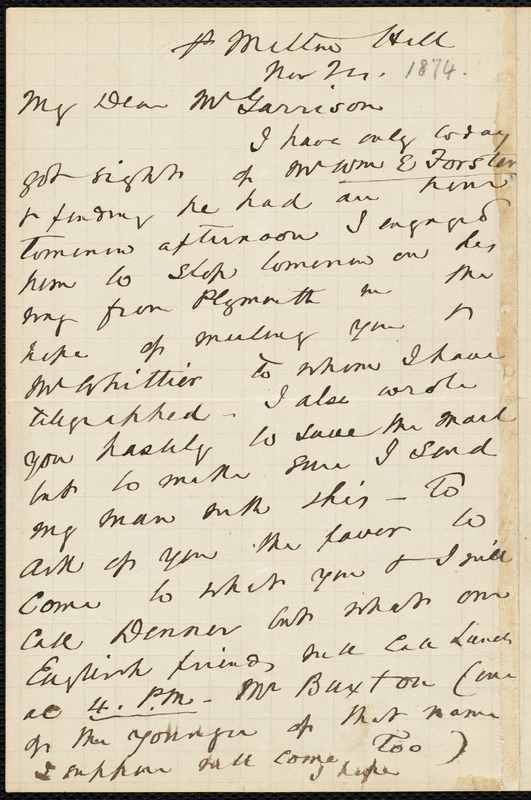 Milton Hill
Nov 21. 1874.
My Dear Mr Garrison
I have only today
got sight of Mr Wm E Forster
& finding he had an hour
tomorrow afternoon I engaged
him to stop tomorrow on his
way from Plymouth in the
hope of meeting you &
Mr Whittier to whom I have
telegraphed - I also wrote
you hastily to save the mail
but to make sure I send
my man with this - To
ask of you the favor to
come to what you & I will
call Dinner but what our
English friends will call Lunch
at 4. P.M. - Mr Buxton (one
of the younger of that name
I suppose will come too)
I hope